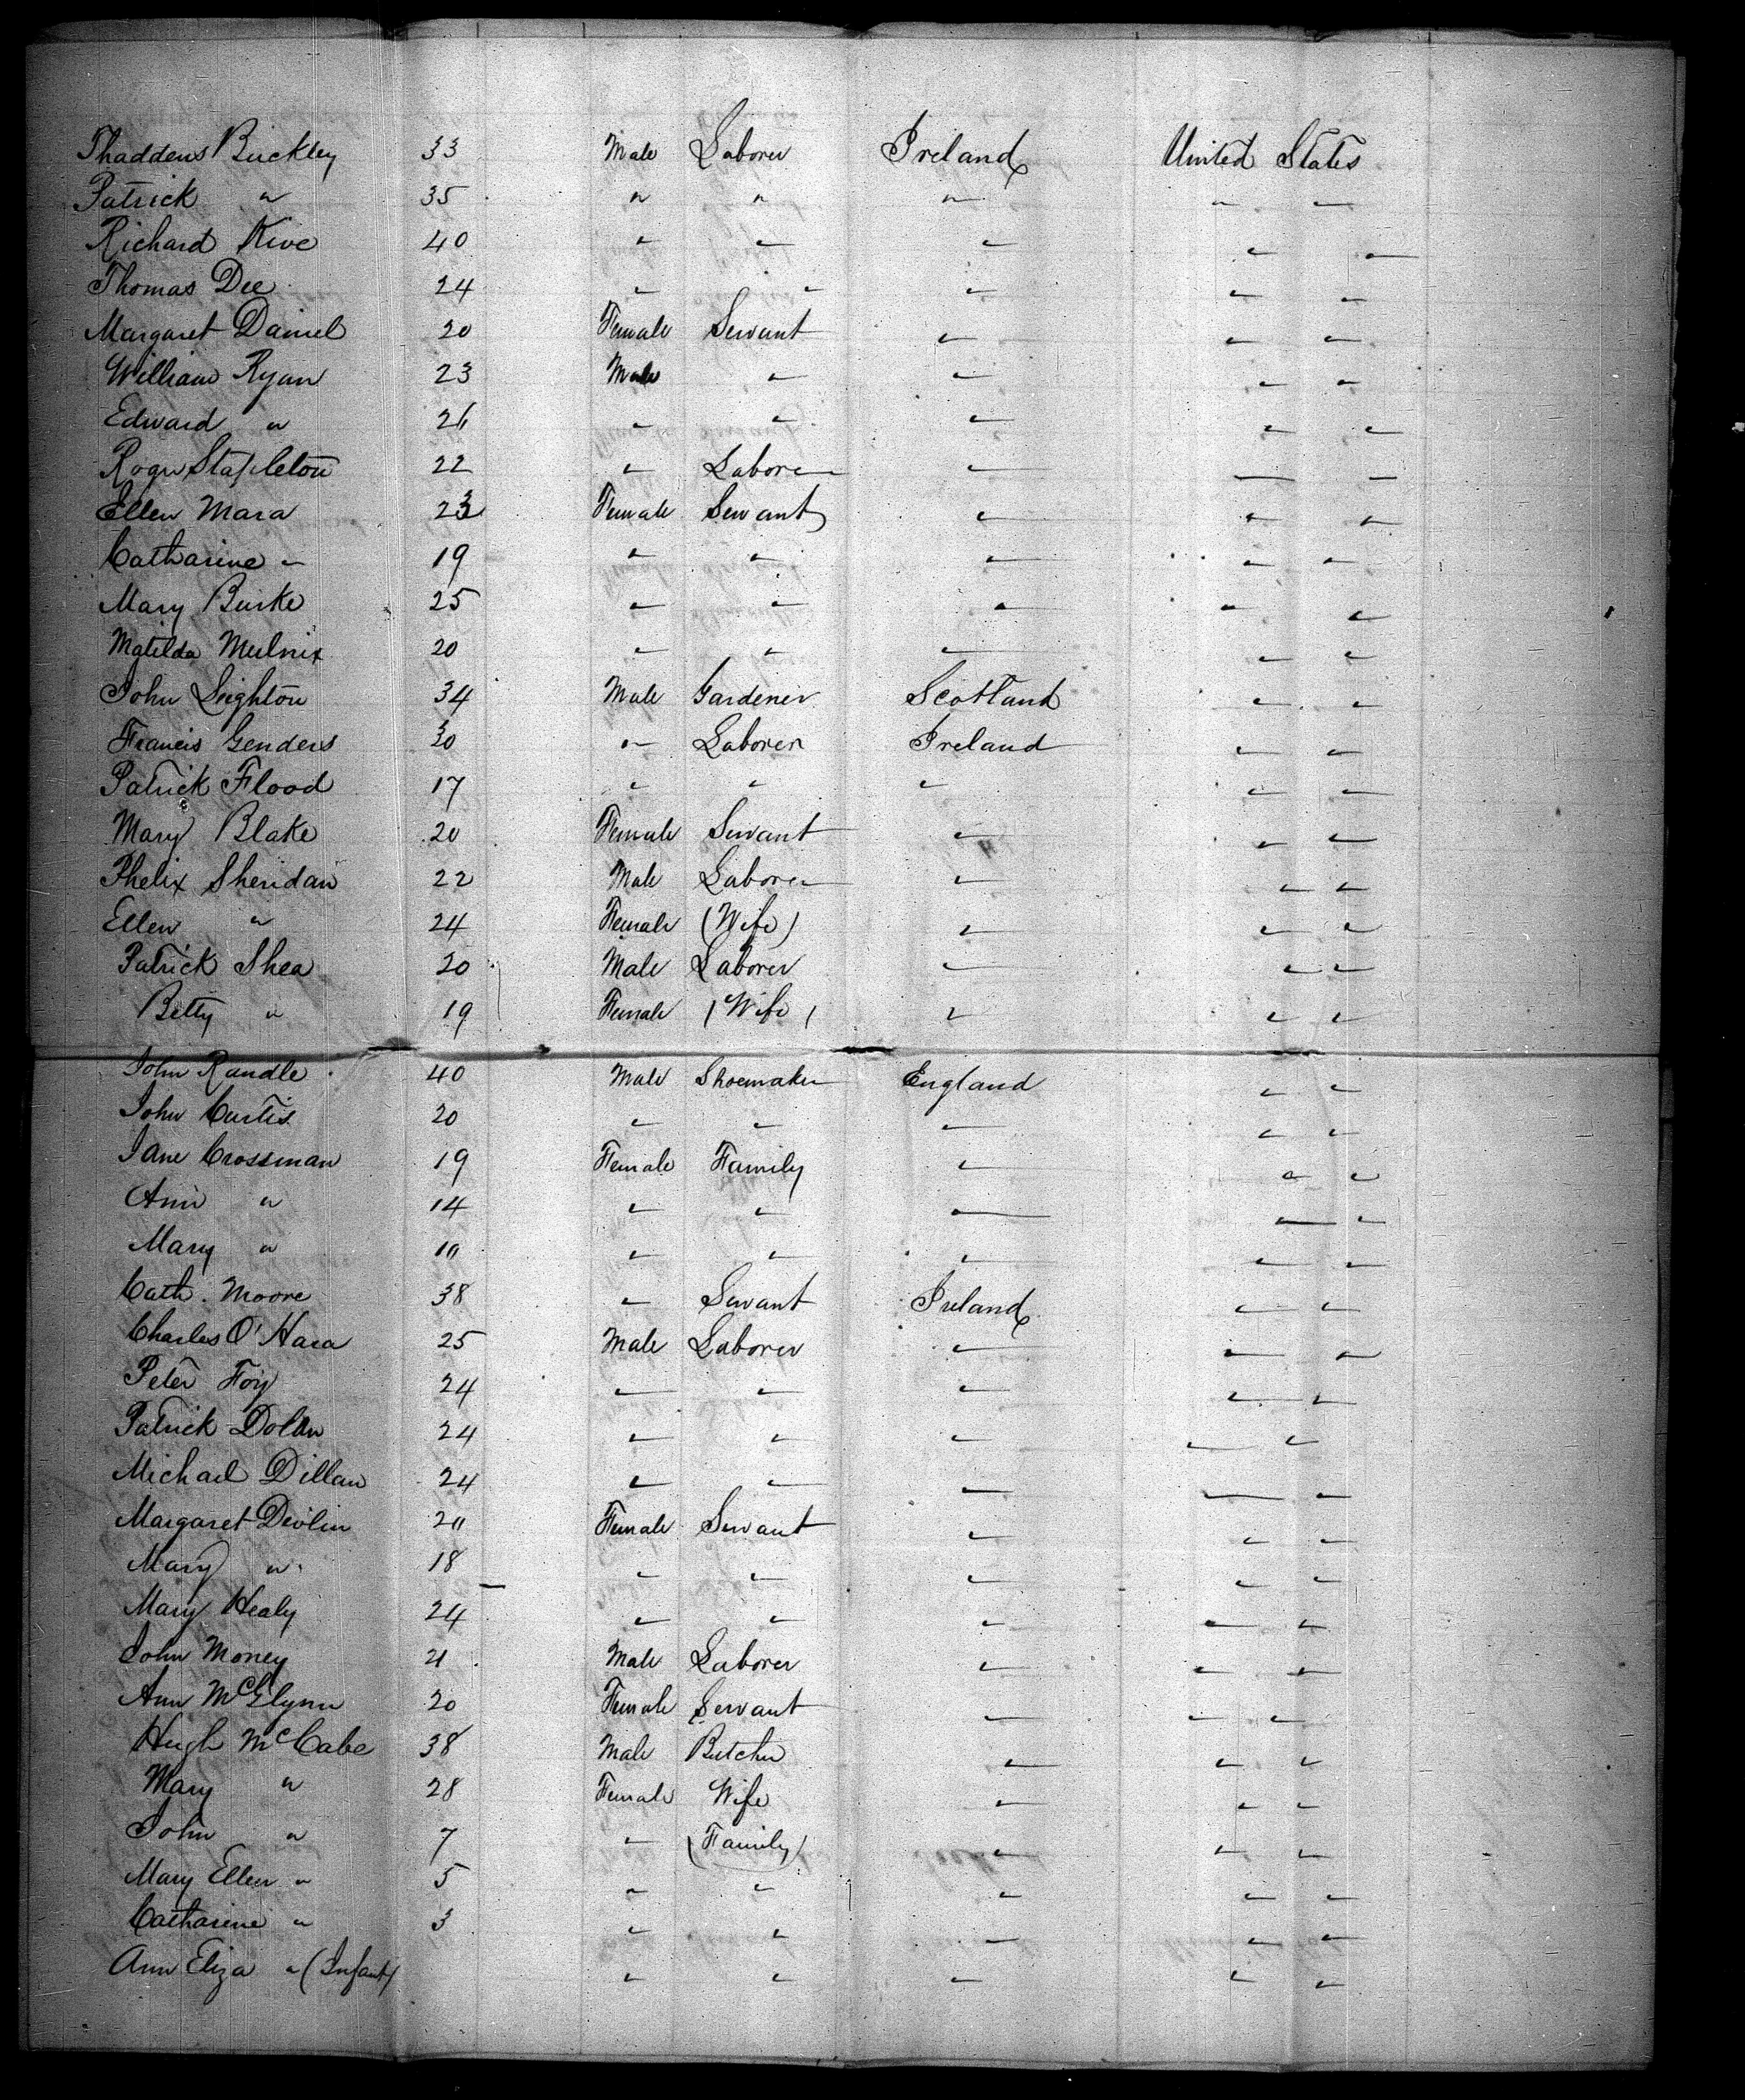 Thaddeus Buckley 33 Male Laborer Ireland United States
Patrick " 35 " " " " "
Richard Kive 40 " " " " "
Thomas Dee 24 " " " " "
Margaret Daniel 20 Female Servant " " "
William Ryan 23 Male " " " "
Edward " 26 " " " " "
Roger Stapleton 22 " Laborer " " "
Ellen Mara 23 Female Servant " " "
Catharine " 19 " " " " "
Mary Burke 25 " " " " "
Matilda Mulnix 20 " " " " "
John Leighton 34 Male Gardener Scotland " "
Francis Genders 30 " Laborer Ireland " "
Patrick Flood 17 " " " " "
Mary Blake 20 Female Servant " " "
Phelix Sheridan 22 Male Laborer " " "
Ellen " 24 Female (Wife) " " "
Patrick Shea 20 Male Laborer " " "
Betty " 19 Female (Wife) " " "
John Randle 40 Male Shoemaker England " "
John Curtis 20 " " " " "
Jane Crossman 19 Female Family " " "
Ann " 14 " " " " "
Mary " 10 " " " " "
Cath. Moore 38 " Servant Ireland " "
Charles O'Hara 25 Male Laborer " " "
Peter Foy 24 " " " " "
Patrick Dolan 24 " " " " "
Michael Dillan 24 " " " " "
Margaret Devlin 20 Female Servant " " "
Mary " 18 " " " " "
Mary Healy 24 " " " " "
John Money 21 Male Laborer " " "
Ann McGlynn 20 Female Servant " " "
Hugh McCabe 38 Male Butcher " " "
Mary " 28 Female Wife " " "
John " 7 " (Family) " " "
Mary Ellen " 5 " " " " "
Catharine " 3 " " " " "
Ann Eliza " (Infant) " " " " "